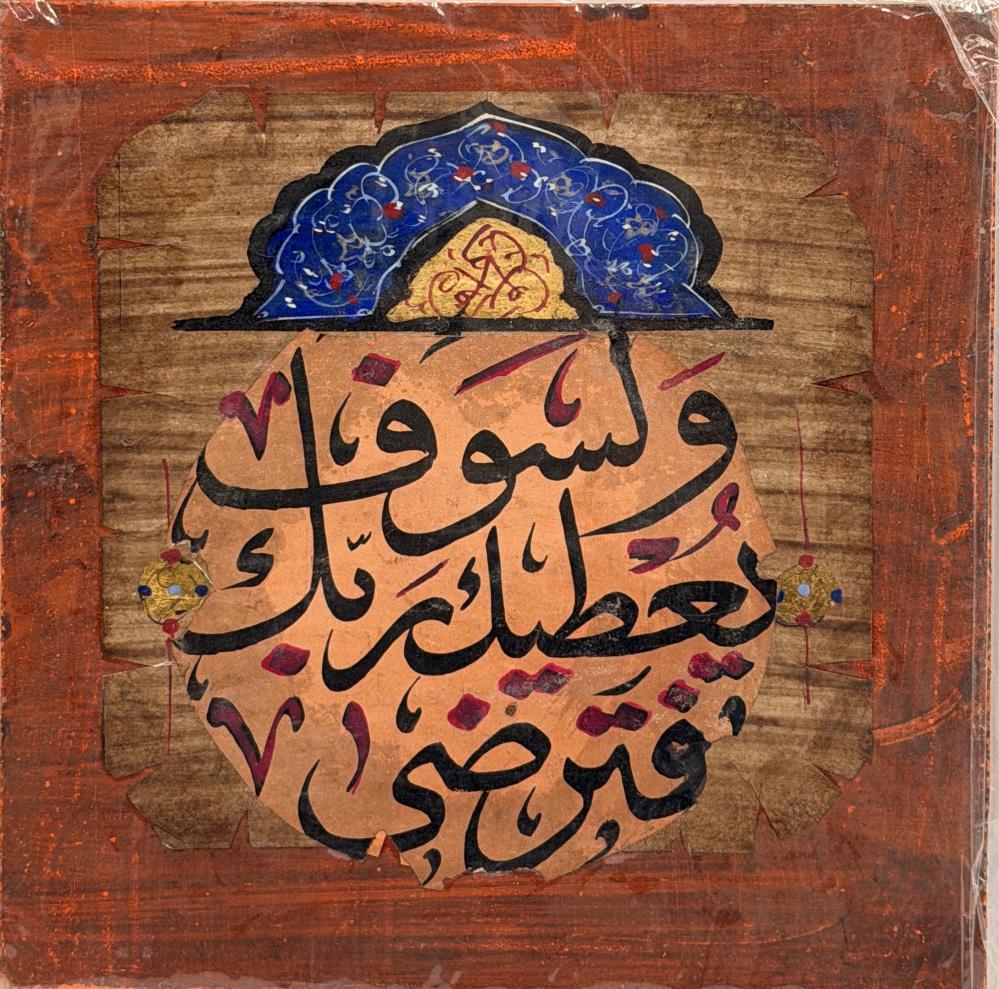 وَلَسَوْفَ
يُعْطِيكَ رَبُّكَ
فَتَرْضَى